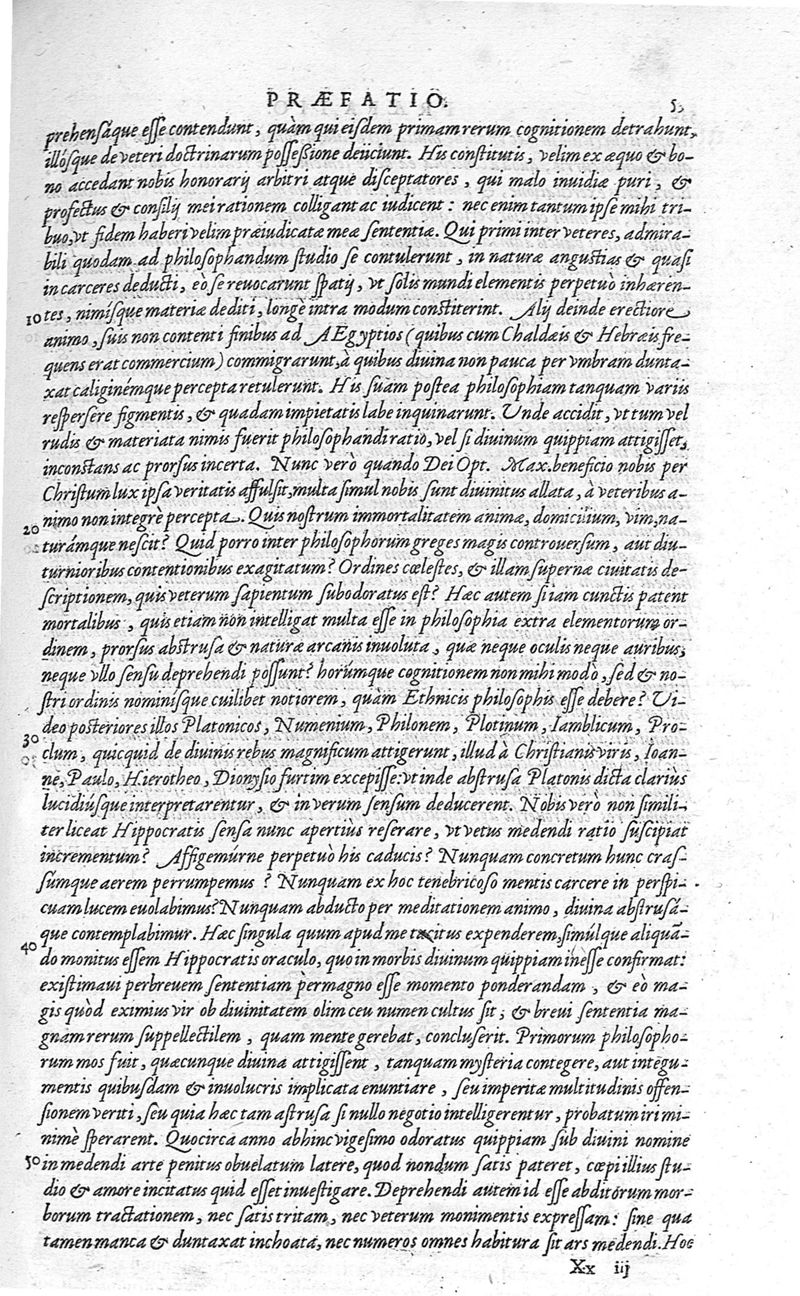 PRÆFATIO.
prehensáque esse contendunt, quàm qui eisdem primam rerum cognitionem detrahunt,
illósque de veteri doctrinarum possessione deiiciunt. His constitutis, velim ex æquo & bo-
no accedant nobis honorarij arbitri atque disceptatores, qui malo inuidiæ puri, &
profectus & consilij mei rationem colligant ac iudicent: nec enim tantum ipse mihi tri-
buo, vt fidem haberi velim præiudicatæ meæ sententiæ. Qui primi inter veteres, admira-
bili quodam ad philosophandum studio se contulerunt, in naturæ angustias & quasi
in carceres deducti, eò se reuocarunt spatij, vt solis mundi elementis perpetuò inhæren-
10 tes, nimísque materiæ dediti, longè intra modum constiterint. Alij deinde erectiore
animo, suis non contenti finibus ad AEgyptios (quibus cum Chaldæis & Hebræis fre-
quens erat commercium) commigrarunt, à quibus diuina non pauca per vmbram dunta-
xat caliginémque percepta retulerunt. His suam postea philosophiam tanquam variis
respersere figmentis, & quadam impietatis labe inquinarunt. Unde accidit, vt tum vel
rudis & materiata nimis fuerit philosophandi ratio, vel si diuinum quippiam attigisset,
inconstans ac prorsus incerta. Nunc verò quando Dei Opt. Max. beneficio nobis per
Christum lux ipsa veritatis affulsit, multa simul nobis sunt diuinitus allata, à veteribus a-
20 nimo non integrè percepta. Quis nostrum immortalitatem animæ, domicilium, vim, na-
turámque nescit? Quid porro inter philosophorum greges magis controuersum, aut diu-
turnioribus contentionibus exagitatum? Ordines cœlestes, & illam supernæ ciuitatis de-
scriptionem, quis veterum sapientum subodoratus est? Hæc autem si iam cunctis patent
mortalibus, quis etiam non intelligat multa esse in philosophia extra elementorum or-
dinem, prorsus abstrusa & naturæ arcanis inuoluta, quæ neque oculis neque auribus,
neque vllo sensu deprehendi possunt? horúmque cognitionem non mihi modò, sed & no-
stri ordinis nominísque cuilibet notiorem, quàm Ethnicis philosophis esse debere? Vi-
deo posteriores illos Platonicos, Numenium, Philonem, Plotinum, Iamblicum, Pro-
30 clum, quicquid de diuinis rebus magnificum attigerunt, illud à Christianis viris, Ioan-
ne, Paulo, Hierotheo, Dionysio furtim excepisse: vt inde abstrusa Platonis dicta clariùs
lucidiúsque interpretarentur, & in verum sensum deducerent. Nobis verò non simili-
ter liceat Hippocratis sensa nunc apertiùs reserare, vt vetus medendi ratio suscipiat
incrementum? Affigemúrne perpetuò his caducis? Nunquam concretum hunc cras-
súmque aerem perrumpemus? Nunquam ex hoc tenebricoso mentis carcere in perspi-
cuam lucem euolabimus? Nunquam abducto per meditationem animo, diuina abstrusá-
40 que contemplabimur. Hæc singula quum apud me tacitus expenderem, simúlque aliquã-
do monitus essem Hippocratis oraculo, quo in morbis diuinum quippiam inesse confirmat:
existimaui perbreuem sententiam permagno esse momento ponderandam, & eò ma-
gis quòd eximius vir ob diuinitatem olim ceu numen cultus sit, & breui sententia ma-
gnam rerum suppellectilem, quam mente gerebat, concluserit. Primorum philosopho-
rum mos fuit, quæcunque diuina attigissent, tanquam mysteria contegere, aut integu-
mentis quibusdam & inuolucris implicata enuntiare, seu imperitæ multitudinis offen-
sionem veriti, seu quia hæc tam astrusa si nullo negotio intelligerentur, probatum iri mi-
nimè sperarent. Quocirca anno abhinc vigesimo odoratus quippiam sub diuini nomine
50 in medendi arte penitus obuelatum latere, quod nondum satis pateret, cœpi illius stu-
dio & amore incitatus quid esset inuestigare. Deprehendi autem id esse abditorum mor-
borum tractationem, nec satis tritam, nec veterum monimentis expressam: sine qua
tamen manca & duntaxat inchoata, nec numeros omnes habitura sit ars medendi. Hoc
Xx iij